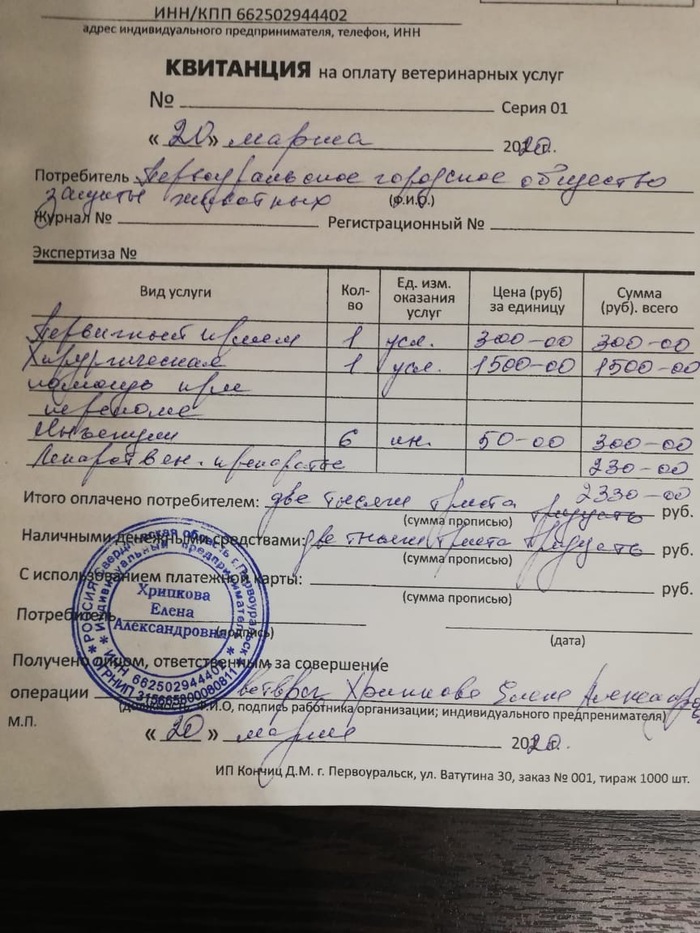 ИНН/КПП 662502944402
адрес индивидуального предпринимателя, телефон, ИНН
КВИТАНЦИЯ на оплату ветеринарных услуг
№ Серия 01
« 20 » марта 2020.
Потребитель Первоуральское городское общество
защиты животных (Ф.И.О.)
Журнал № Регистрационный №
Экспертиза №
Вид услуги Кол-во Ед. изм. оказания услуг Цена (руб) за единицу Сумма (руб). всего
Первичный прием 1 усл. 300-00 300-00
Хирургическая 1 усл. 1500-00 1500-00
помощь при
переломе
Инъекции 6 ин. 50-00 300-00
Лекарствен. препараты 230-00
2330-00
Итого оплачено потребителем: две тысячи триста тридцать руб.
(сумма прописью)
Наличными денежными средствами: две тысячи триста тридцать руб.
(сумма прописью)
С использованием платежной карты: руб.
(сумма прописью)
Потребитель
(подпись) (дата)
Получено лицом, ответственным за совершение
операции ветврач Хрипкова Елена
(должность, Ф.И.О, подпись работника организации; индивидуального предпренимателя)
М.П.
« 20 » марта 2020.
ИП Кончиц Д.М. г. Первоуральск, ул. Ватутина 30, заказ № 001, тираж 1000 шт.
РОССИЯ Свердловская область г. Первоуральск
Индивидуальный предприниматель
Хрипкова
Елена
Александровна
ИНН 662502944402